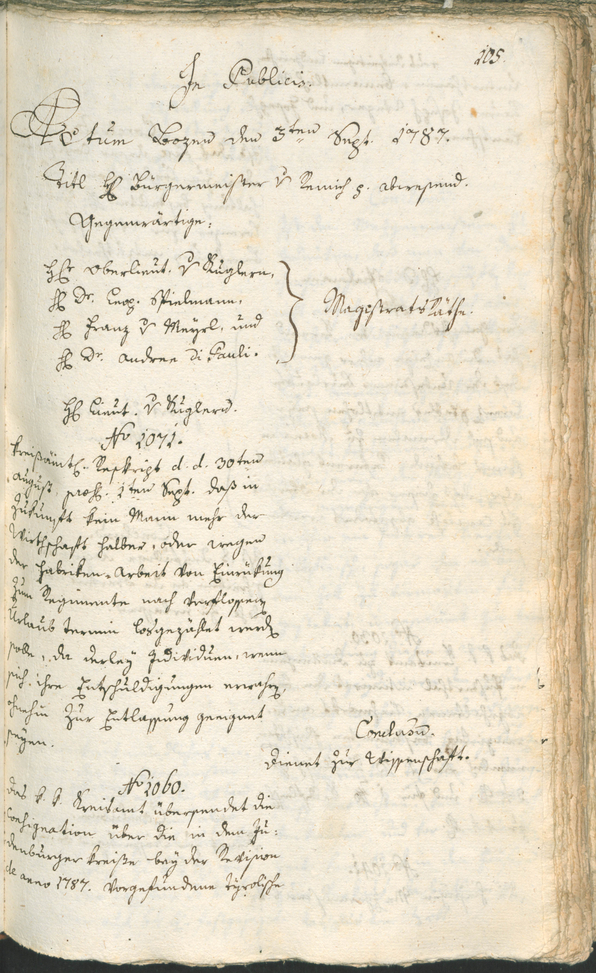 105.
In Publicis.
Actum Bozen den 3ten Sept. 1787.
Titl H Bürgermeister v Remich p. abwesend.
Gegenwärtige:
Hr Oberlieut. v Kuglern,
H Dr. Leop. Spielmann,
H Franz v Meyrl, und
H Dr. Andree Di Pauli.
Magistrats Räthe.
H Lieut. v Kuglern.
No 1071.
Kreisämtl. Reskript d. d. 30ten
August, prod. 1ten Sept. daß in
Zukunft kein Mann mehr der
Wirthschaft halber, oder wegen
der Fabriken-Arbeit von Einrükung
zum Regimente nach verfloßenen
Urlaub termin losgezählet werden
solle, da derley Individuen, wenn
sich ihre Entschuldigungen erwahren,
ohnehin zur Entlassung geeignet
seyen.
Conclusum.
Dienet zur Wissenschaft.
No 1060.
Das k. k. Kreisamt übersendet die
Consignation über die in dem Ju-
denburger Kreise bey der Revision
de anno 1787. vorgefundene tyrolische